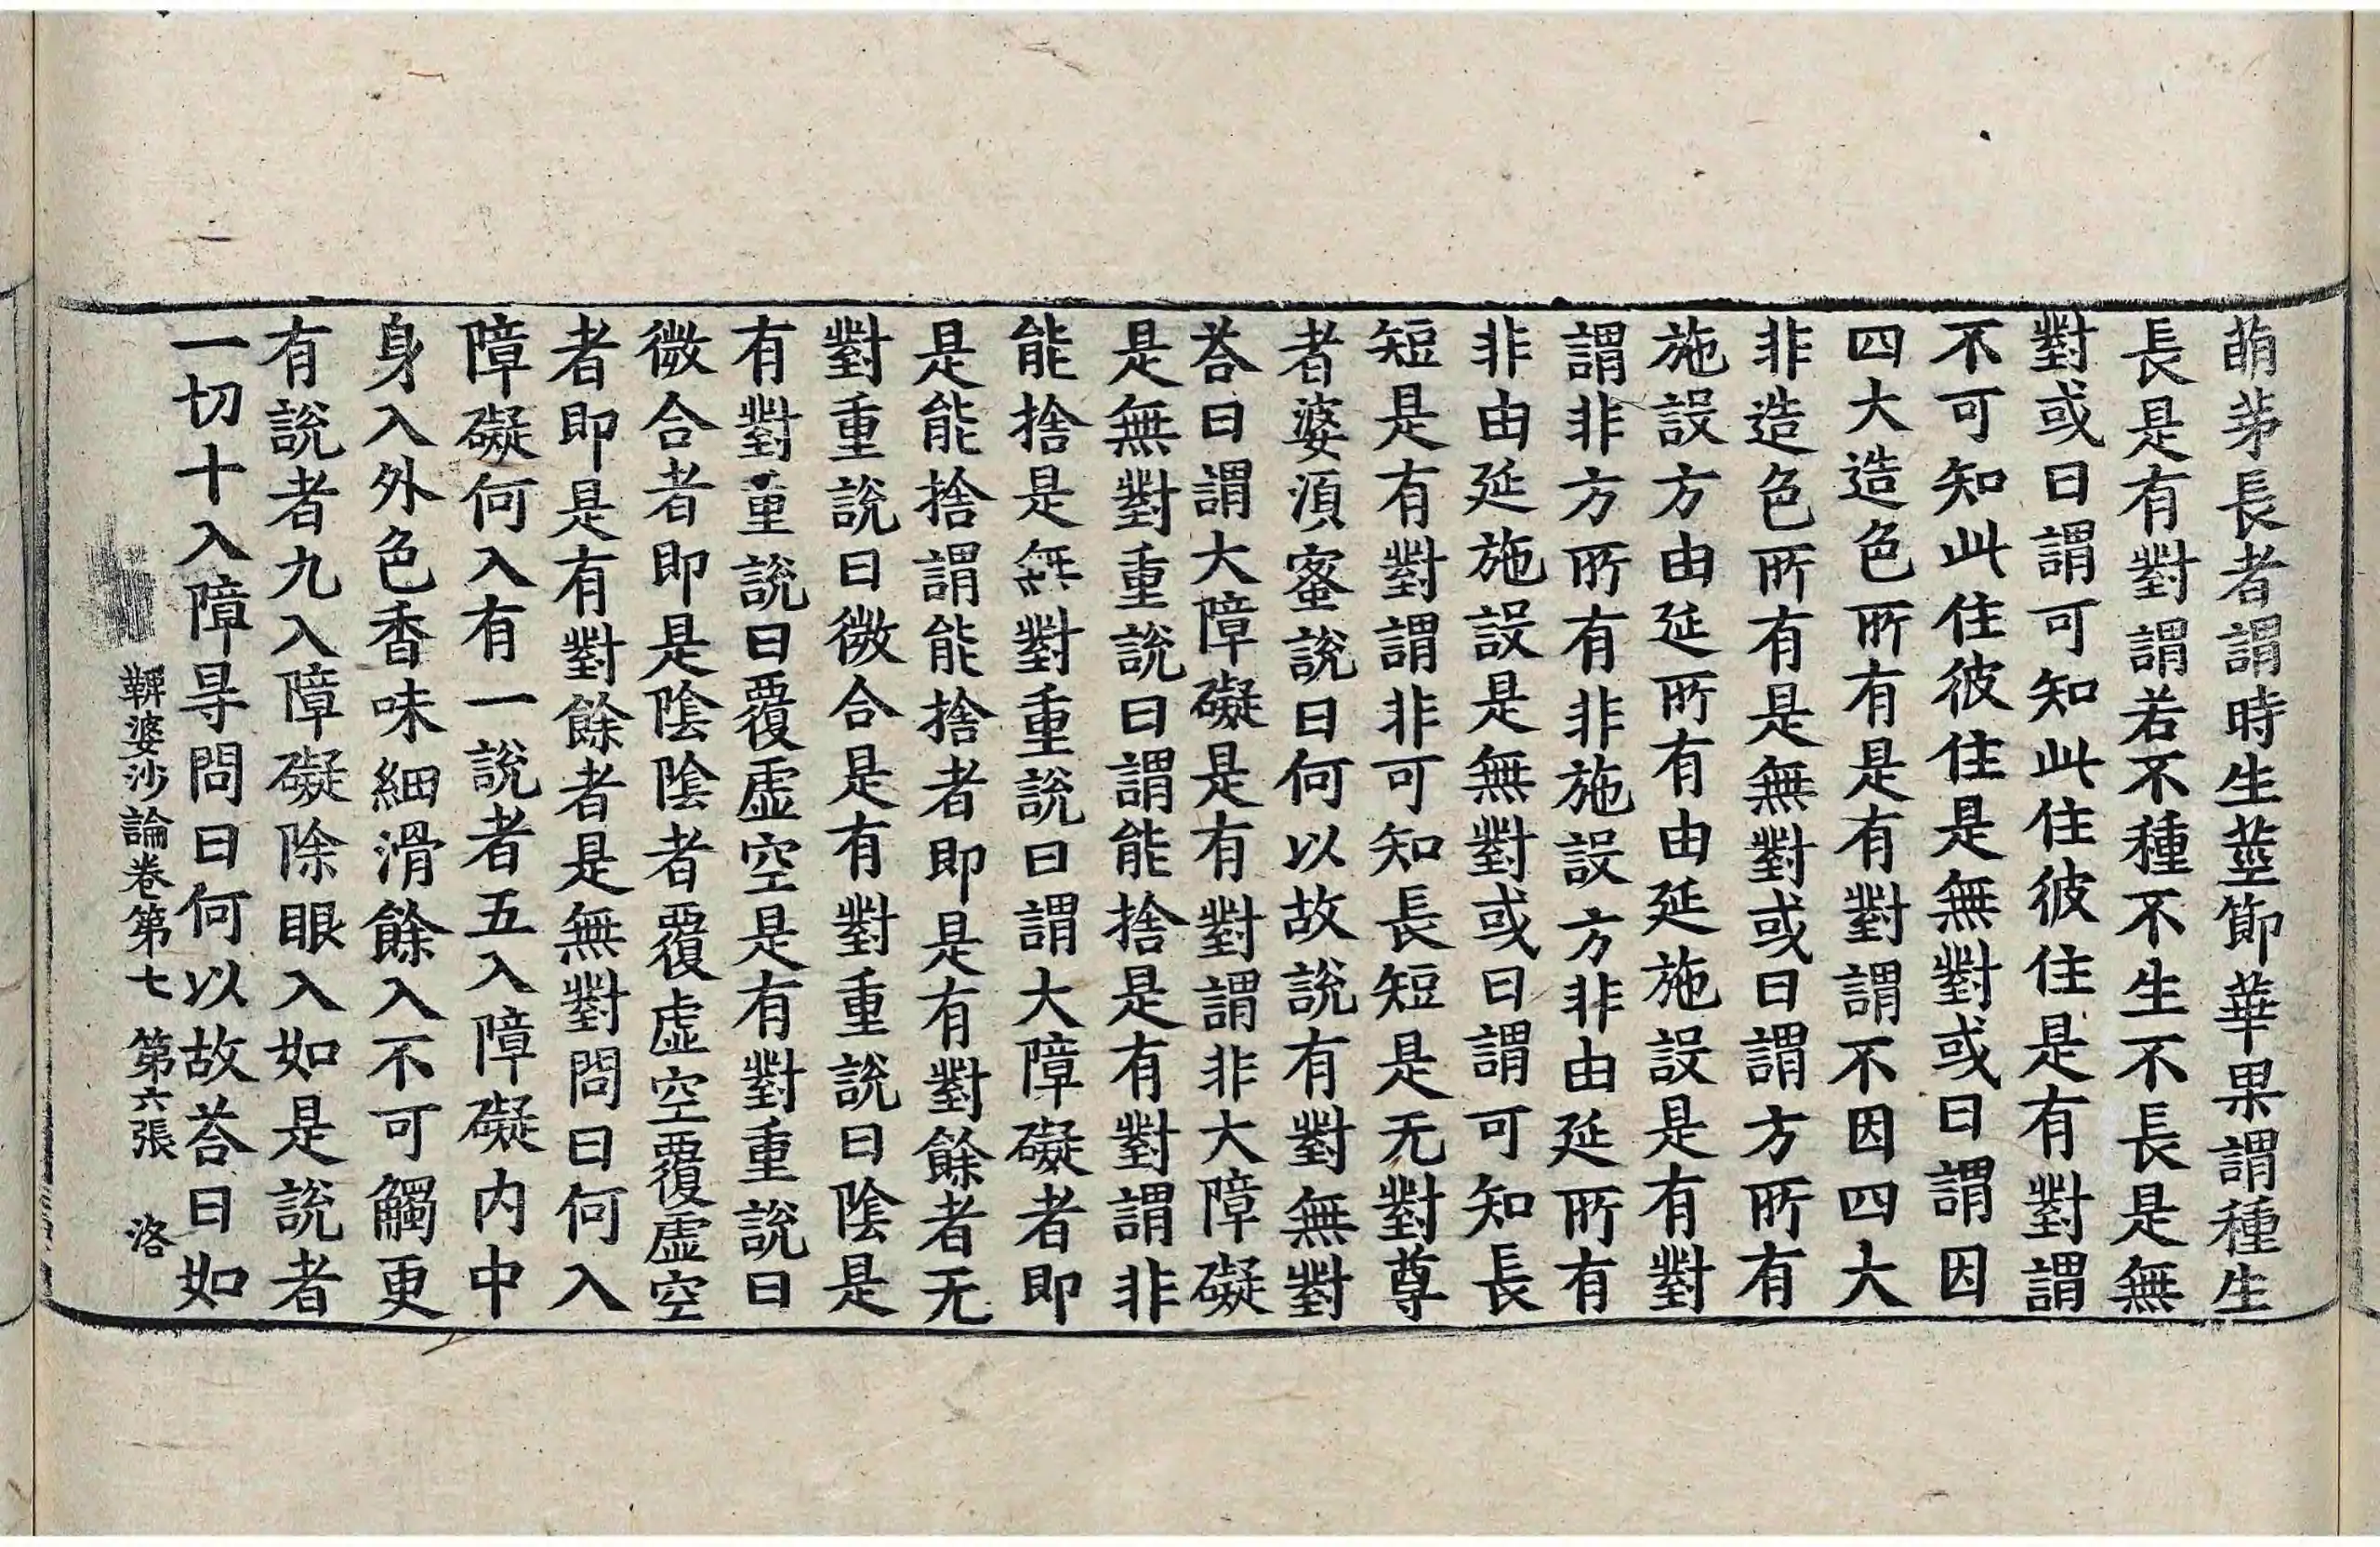 萌芽長者謂時生莖節華果謂種生
長是有對謂若不種不生不長是無
對或曰謂可知此住彼住是有對謂
不可知此住彼住是無對或曰謂因
四大造色所有是有對謂不因四大
非造色所有是無對或曰謂方所有
施設方由延所有由延施設是有對
謂非方所有非施設方非由延所有
非由延施設是無對或曰謂可知長
短是有對謂非可知長短是无對尊
者婆須蜜說曰何以故說有對無對
荅曰謂大障礙是有對謂非大障礙
是無對重說曰謂能捨是有對謂非
能捨是無對重說曰謂大障礙者即
是能捨謂能捨者即是有對餘者无
對重說曰微合是有對重說曰陰是
有對重說曰覆虛空是有對重說曰
微合者即是陰陰者覆虛空覆虛空
者即是有對餘者是無對問曰何入
障礙何入有一說者五入障礙內中
身入外色香味細滑餘入不可觸更
有說者九入障礙除眼入如是說者
一切十入障㝵問曰何以故荅曰如
鞞婆沙論卷第七 第六張 洛